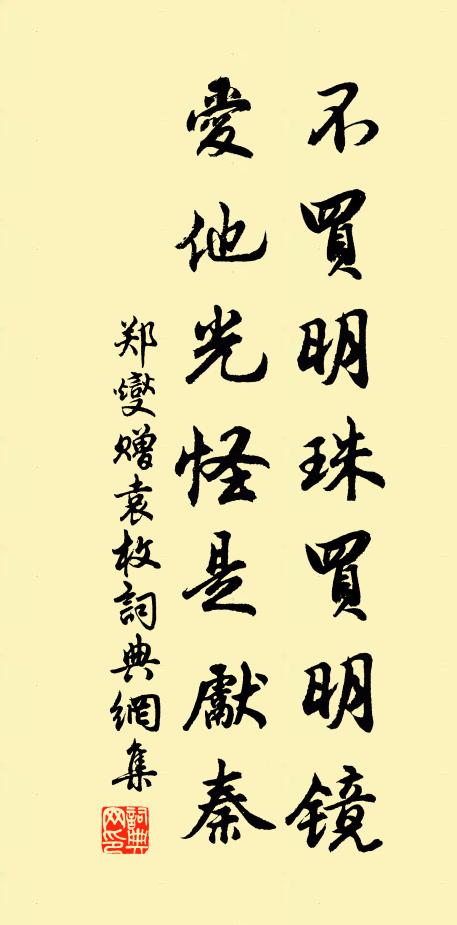 不買明珠買明镜
愛他光怪是獻秦
郑燮赠袁枚詞典網集
詞典
网印